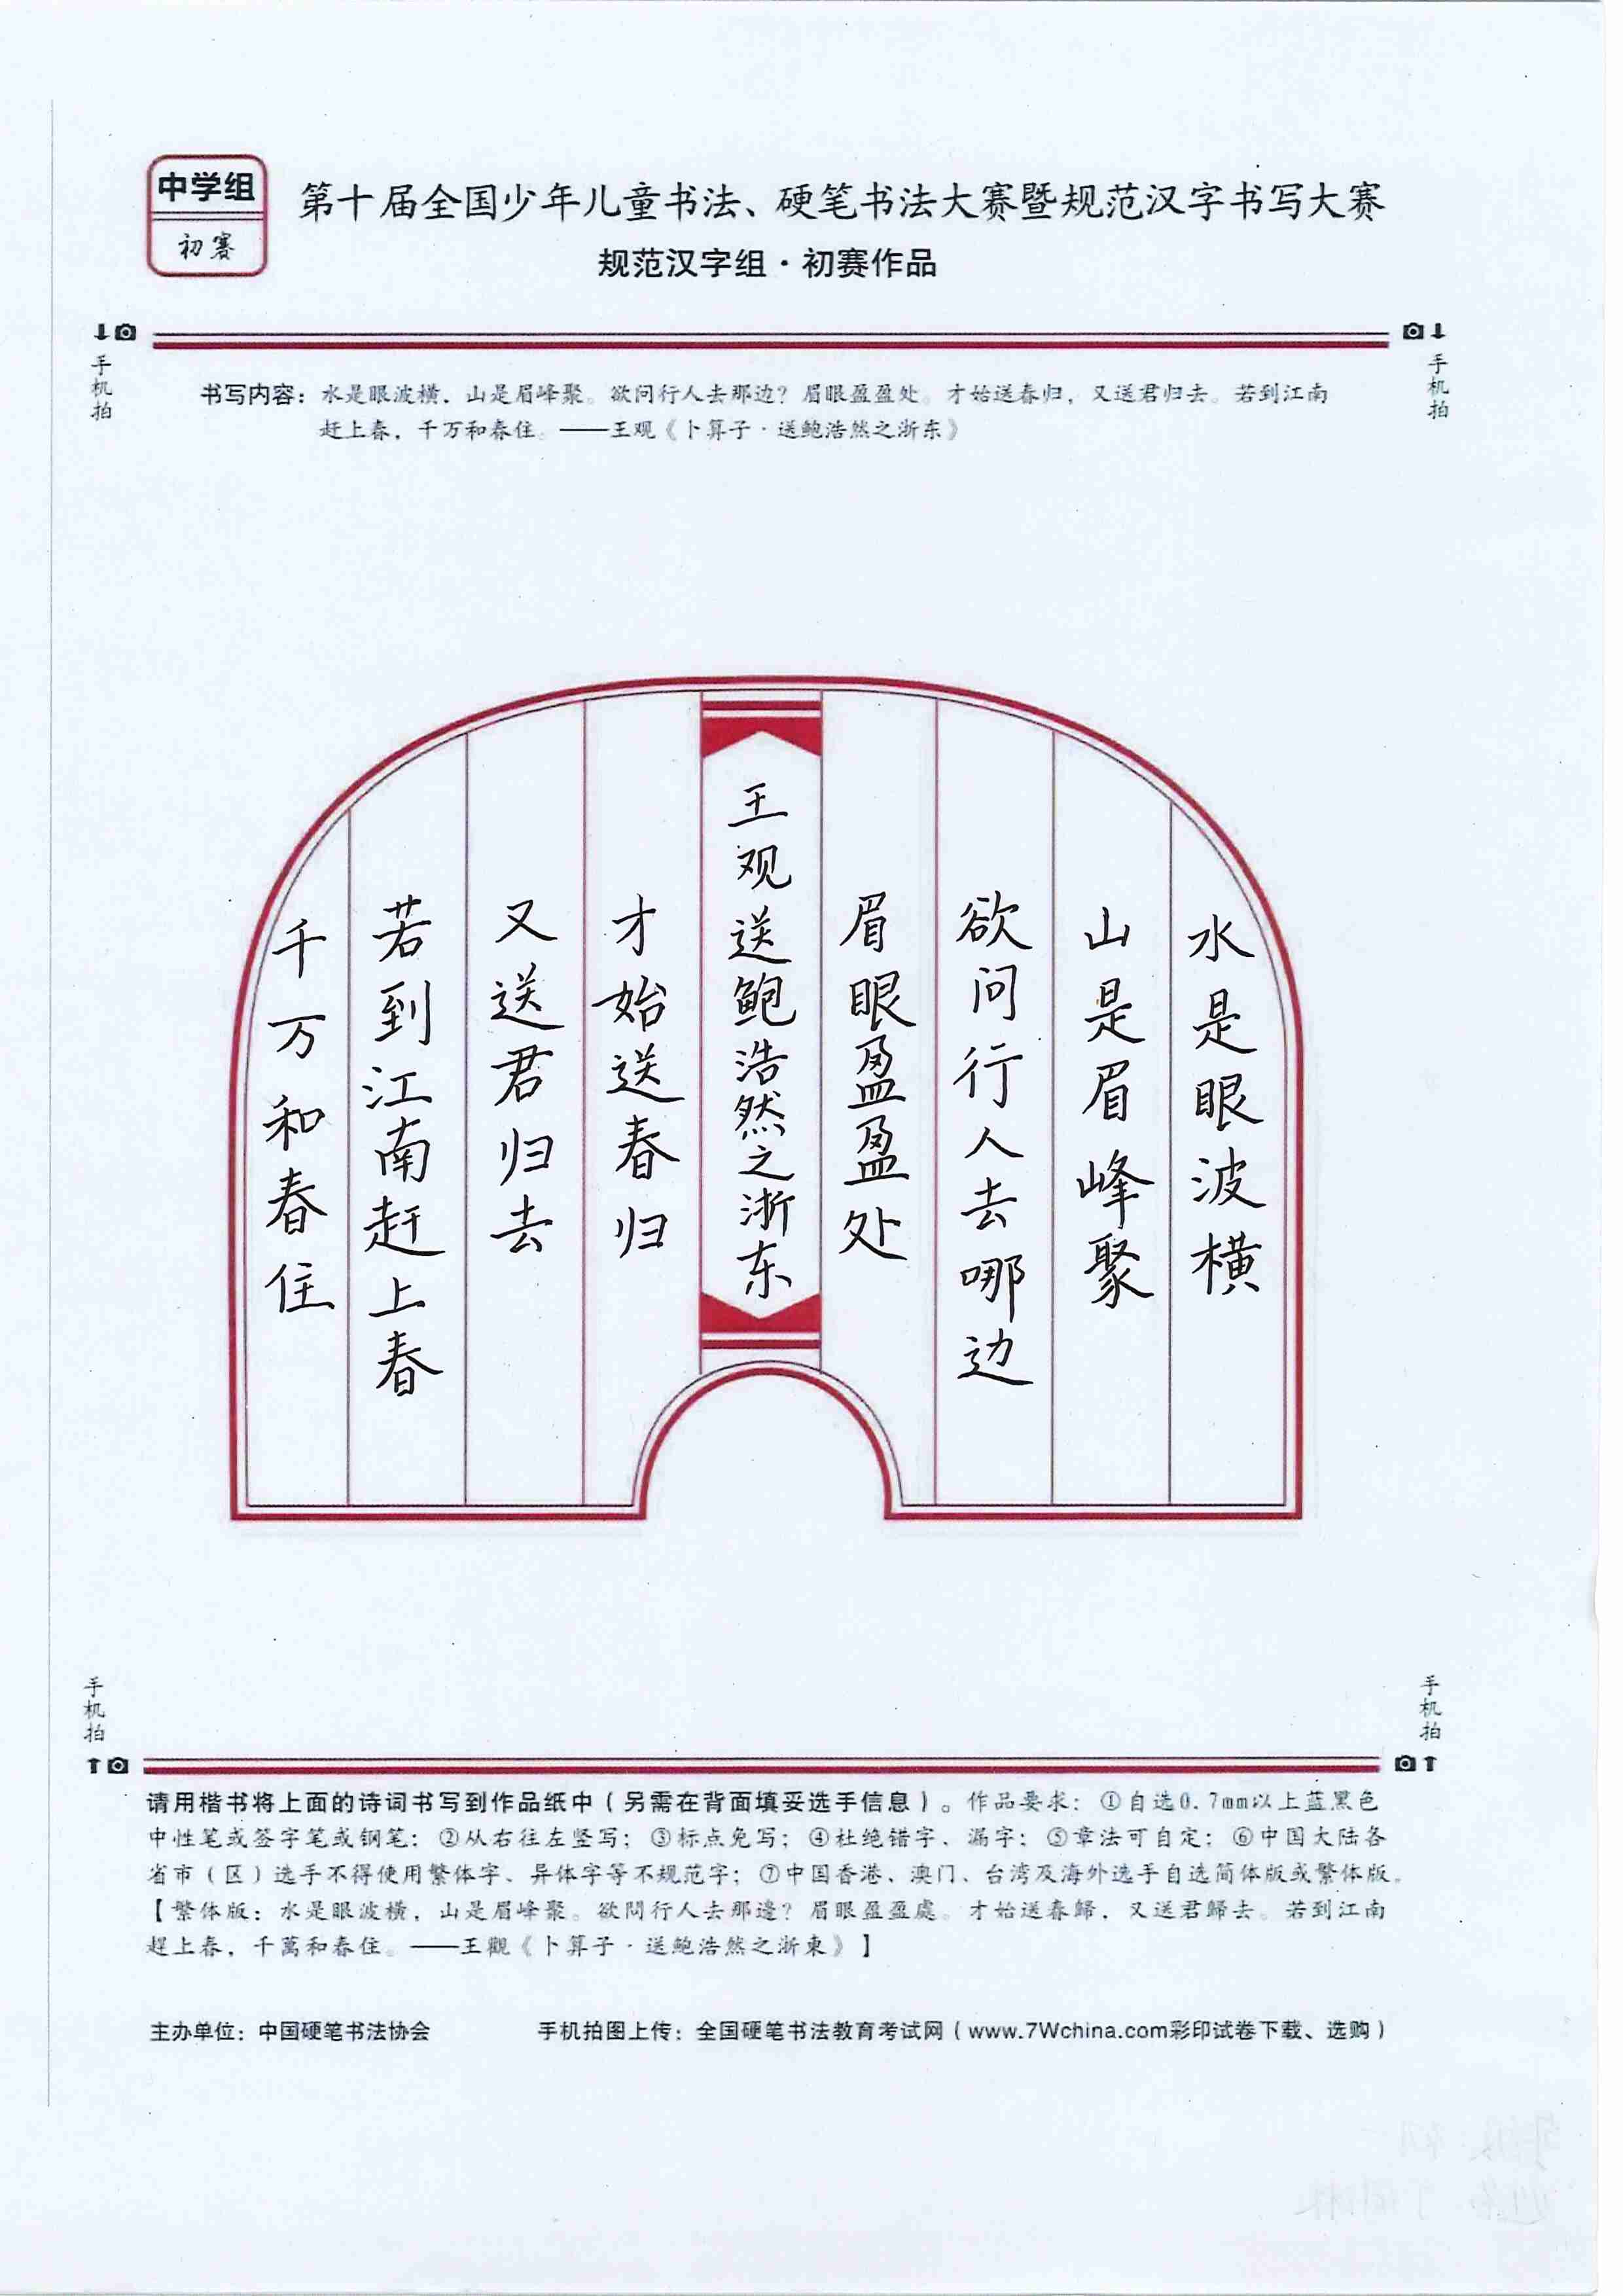 中学组
初赛
第十届全国少年儿童书法、硬笔书法大赛暨规范汉字书写大赛
规范汉字组·初赛作品
手机拍
手机拍
书写内容：水是眼波横，山是眉峰聚。欲问行人去那边？眉眼盈盈处。才始送春归，又送君归去。若到江南
赶上春，千万和春住。——王观《卜算子·送鲍浩然之浙东》
水是眼波横
山是眉峰聚
欲问行人去哪边
眉眼盈盈处
王观送鲍浩然之浙东
才始送春归
又送君归去
若到江南赶上春
千万和春住
手机拍
手机拍
请用楷书将上面的诗词书写到作品纸中（另需在背面填妥选手信息）。作品要求：①自选0.7mm以上蓝黑色
中性笔或签字笔或钢笔；②从右往左竖写；③标点免写；④杜绝错字、漏字；⑤章法可自定；⑥中国大陆各
省市（区）选手不得使用繁体字、异体字等不规范字；⑦中国香港、澳门、台湾及海外选手自选简体版或繁体版。
【繁体版：水是眼波橫，山是眉峰聚。欲問行人去那邊？眉眼盈盈處。才始送春歸，又送君歸去。若到江南
趕上春，千萬和春住。——王觀《卜算子·送鮑浩然之浙東》】
主办单位：中国硬笔书法协会
手机拍图上传：全国硬笔书法教育考试网（www.7Wchina.com彩印试卷下载、选购）